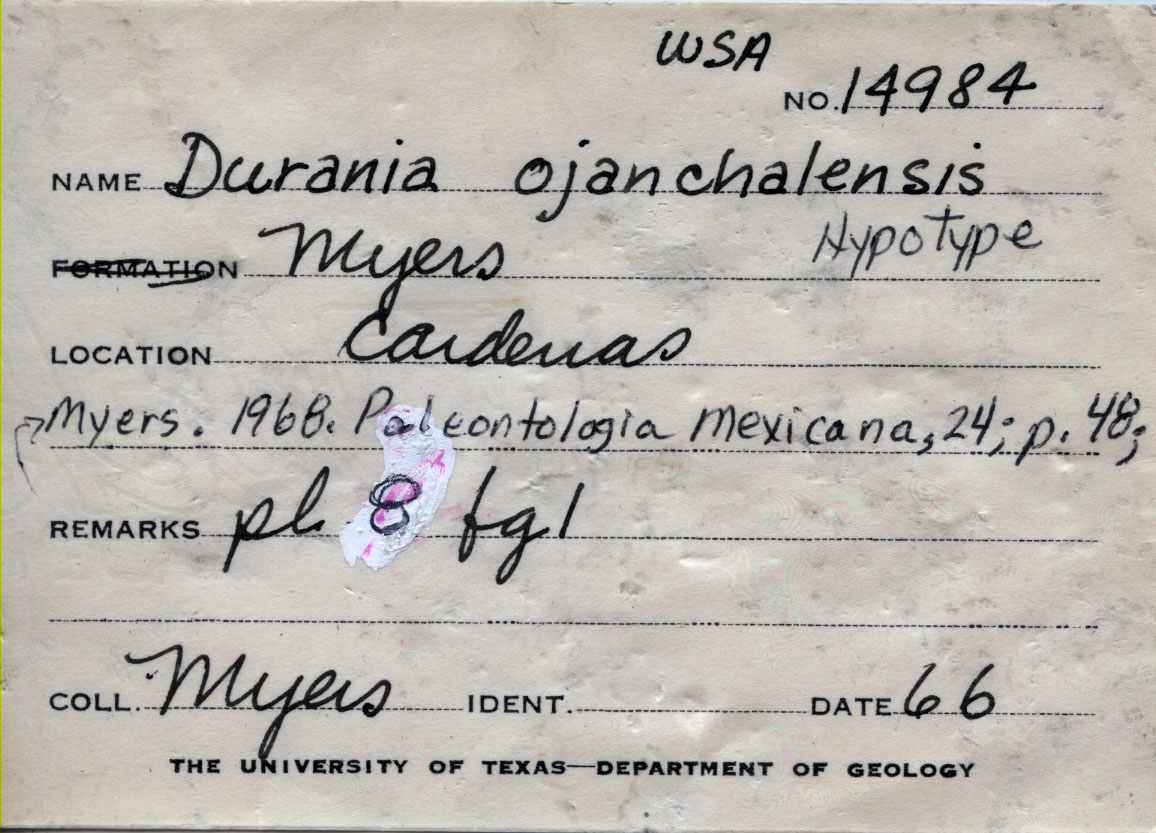 WSA
NO. 14984
NAME Durania ojanchalensis
Hypotype
FORMATION Myers
LOCATION Cardenas
Myers. 1968. Paleontologia Mexicana, 24; p. 48;
REMARKS pl. 8 fg 1
COLL. Myers IDENT. DATE 66
THE UNIVERSITY OF TEXAS—DEPARTMENT OF GEOLOGY